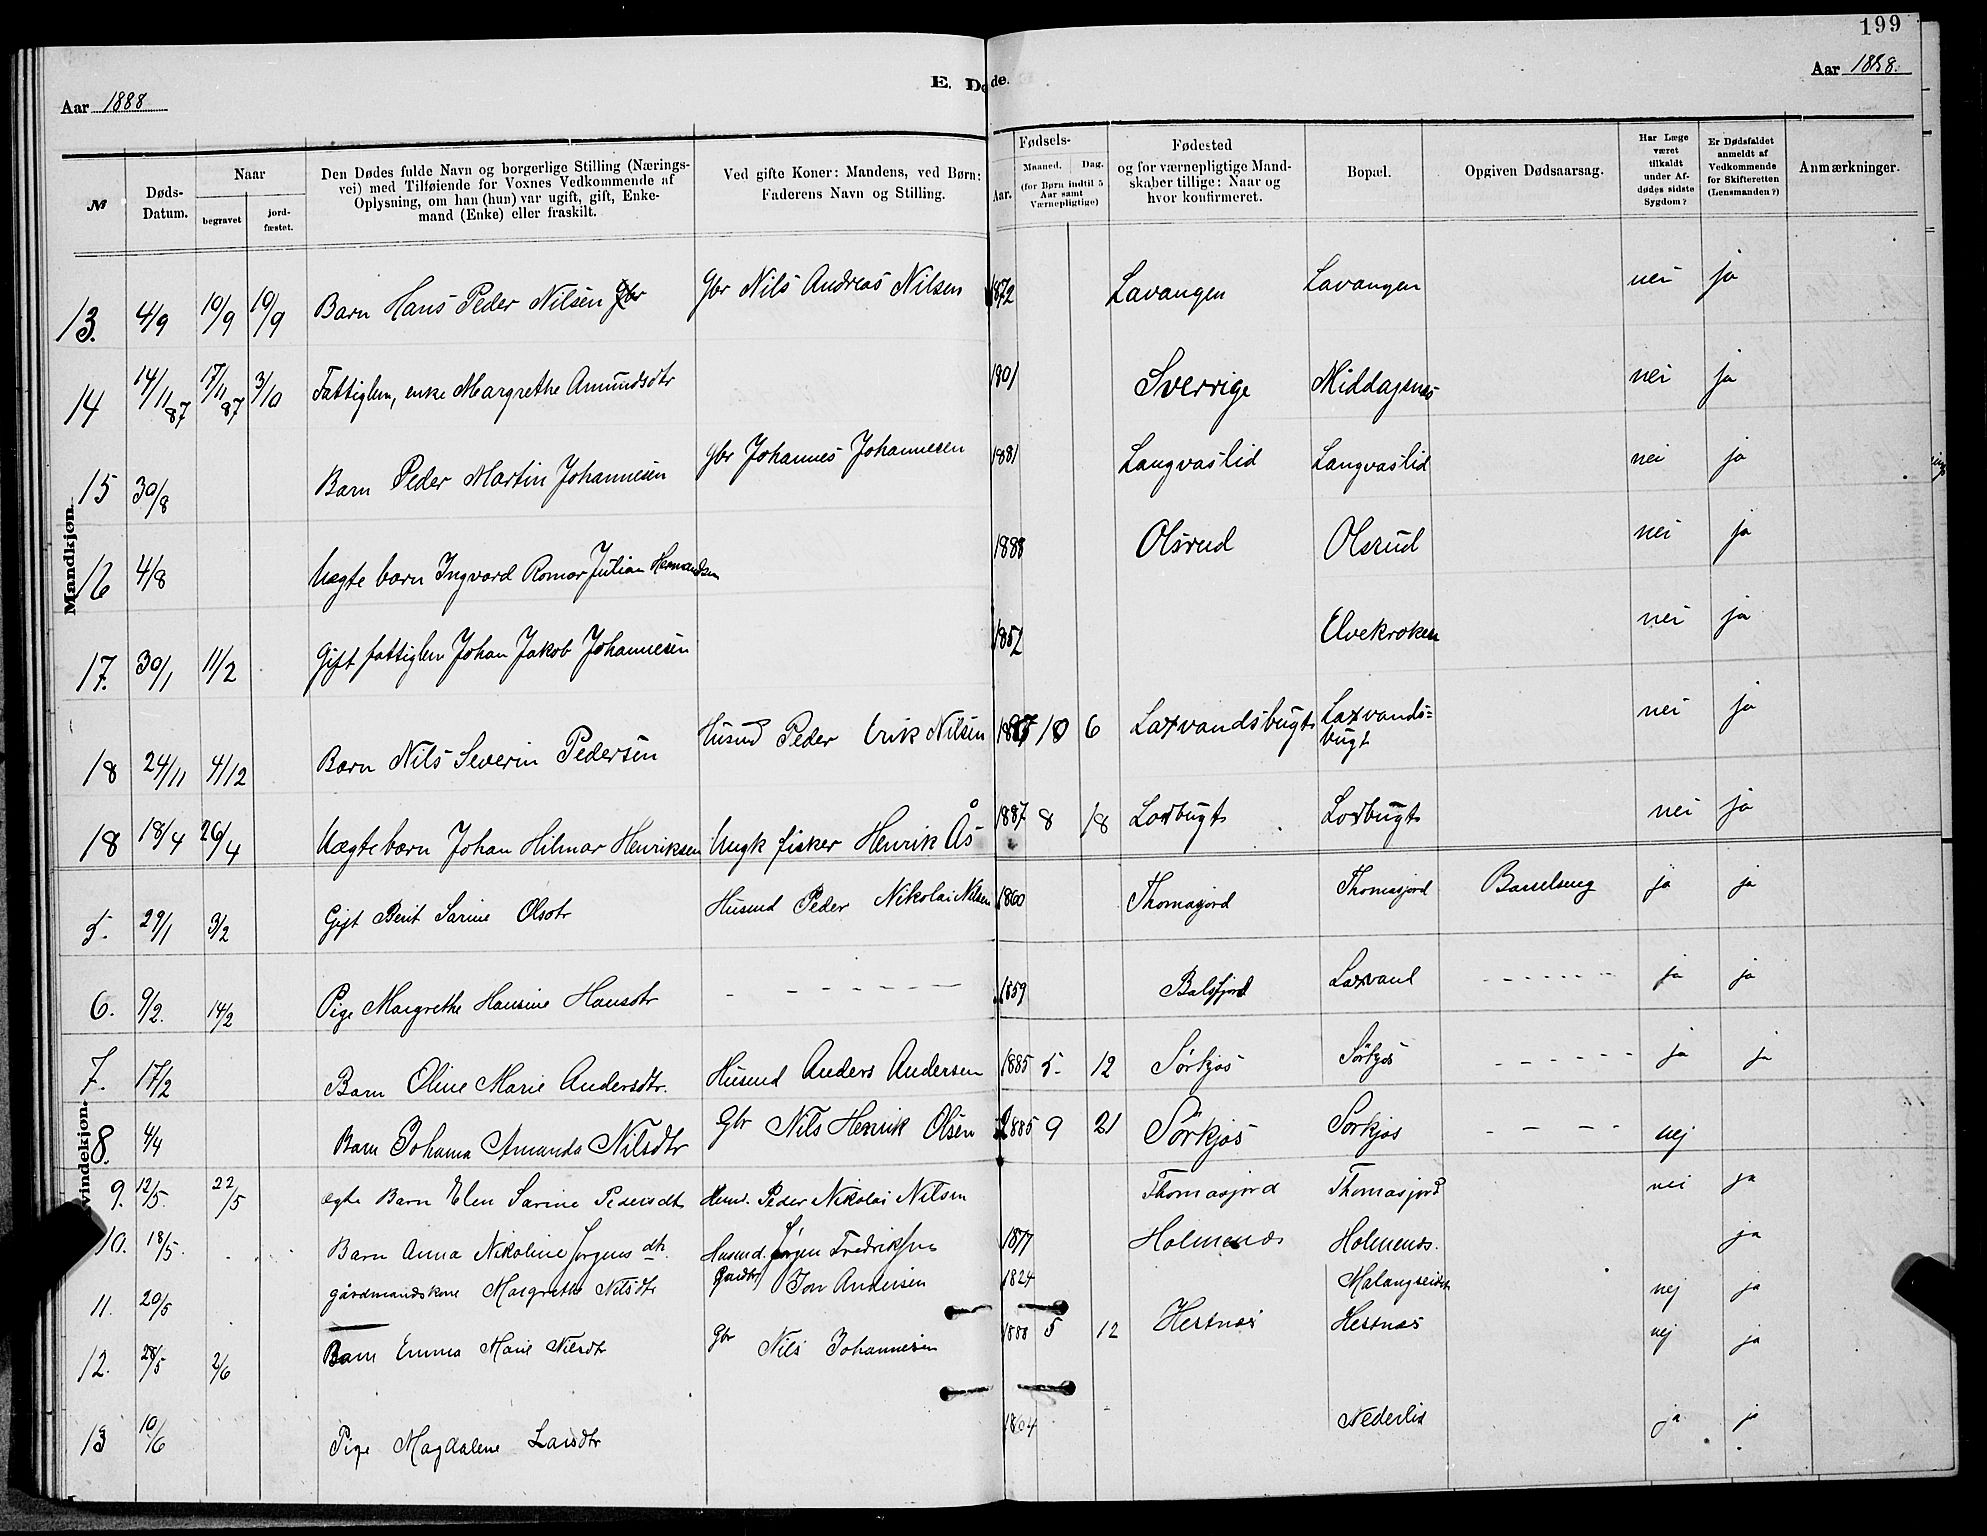 199
Aar 1888
E. Døde.
Aar 1888.
№
Døds-Datum.
Naar
begravet
jord-fæstet.
Den Dødes fulde Navn og borgerlige Stilling (Nærings-
vei) med Tilføiende for Voxnes Vedkommende af
Oplysning, om han (hun) var ugift, gift, Enke-
mand (Enke) eller fraskilt.
Ved gifte Koner: Mandens, ved Børn:
Faderens Navn og Stilling.
Fødsels-
Aar.
Maaned. Dag.
(for Børn indtil 5
Aar samt
Værnepligtige)
Fødested
og for værnepligtige Mand-
skaber tillige: Naar og
hvor konfirmeret.
Bopæl.
Opgiven Dødsaarsag.
Har Læge
været
tilkaldt
under Af-
dødes sidste
Sygdom?
Er Dødsfaldet
anmeldt af
Vedkommende
for Skifteretten
(Lensmanden?)
Anmærkninger.
Mandkjøn.
13. 4/9 19/9 19/9 Barn Hans Peder Nilsen Gbr Nils Andreas Nilsen 1872 Lavangen Lavangen nei ja
14 14/11 87 17/11 87 3/10 Fattiglem, enke Margrethe Amundsdtr 1801 Sverrige Middagsnes nei ja
15 30/8 Barn Peder Martin Johannesen Gbr Johannes Johannesen 1881 Langvaslid Langvaslid nei ja
16 4/8 Uægte barn Ingvard Romar Julian Hermandsen 1888 Olsrud Olsrud nei ja
17. 30/1 11/2 Gift fattiglem Johan Jakob Johannesen 1852 Elvekroken nei ja
18 24/11 4/12 Barn Nils Severin Pedersen Husmd Peder Erik Nilsen 1887 10 6 Laxvandsbugt Laxvands=
bugt nei ja
18 18/4 26/4 Uægte barn Johan Hilmar Henriksen Ungk fisker Henrik Ås 1887 8 18 Lodbugt Lodbugt nei ja
Kvindekjøn.
5. 29/1 3/2 Gift Berit Sarine Olsdtr Husmd Peder Nikolai Nilsen 1860 Thomasjord Thomasjord Barselseng ja ja
6. 9/2. 14/2 Pige Margrethe Hansine Hansdtr - - - - - - - 1859 Balsfjord Laxvand - - - - - - ja ja
7. 17/2 Barn Oline Marie Andersdtr. Husmd Anders Andersen 1885 5. 12 Sørkjos Sørkjos - - - - - - ja ja
8. 4/4 Barn Johanna Amanda Nilsdtr Gbr Nils Henrik Olsen 1885 9 21 Sørkjos Sørkjos - - - - nej
9. 12/5. 22/5 ægte Barn Elen Sarine Pedersdtr Husm. Peder Nikolai Nilsen Thomasjord Thomasjord nei ja
10. 18/5. Barn Anna Nikoline Jørgens dtr. Husmd. Jørgen Fredriksen 1877 Holmenæs Holmenæs. ja
11. 20/5 gårdmandskone Margrethe Nilsdtr Jon Andersen 1824 Malangseidet nej ja
12. 28/5 2/6 Barn Emma Marie Nilsdtr Gbr Nils Johannesen 1888 5 12 Hestnæs Hestnæs nej ja
13 10/6 Pige Magdalene Larsdtr Nederlid ja ja